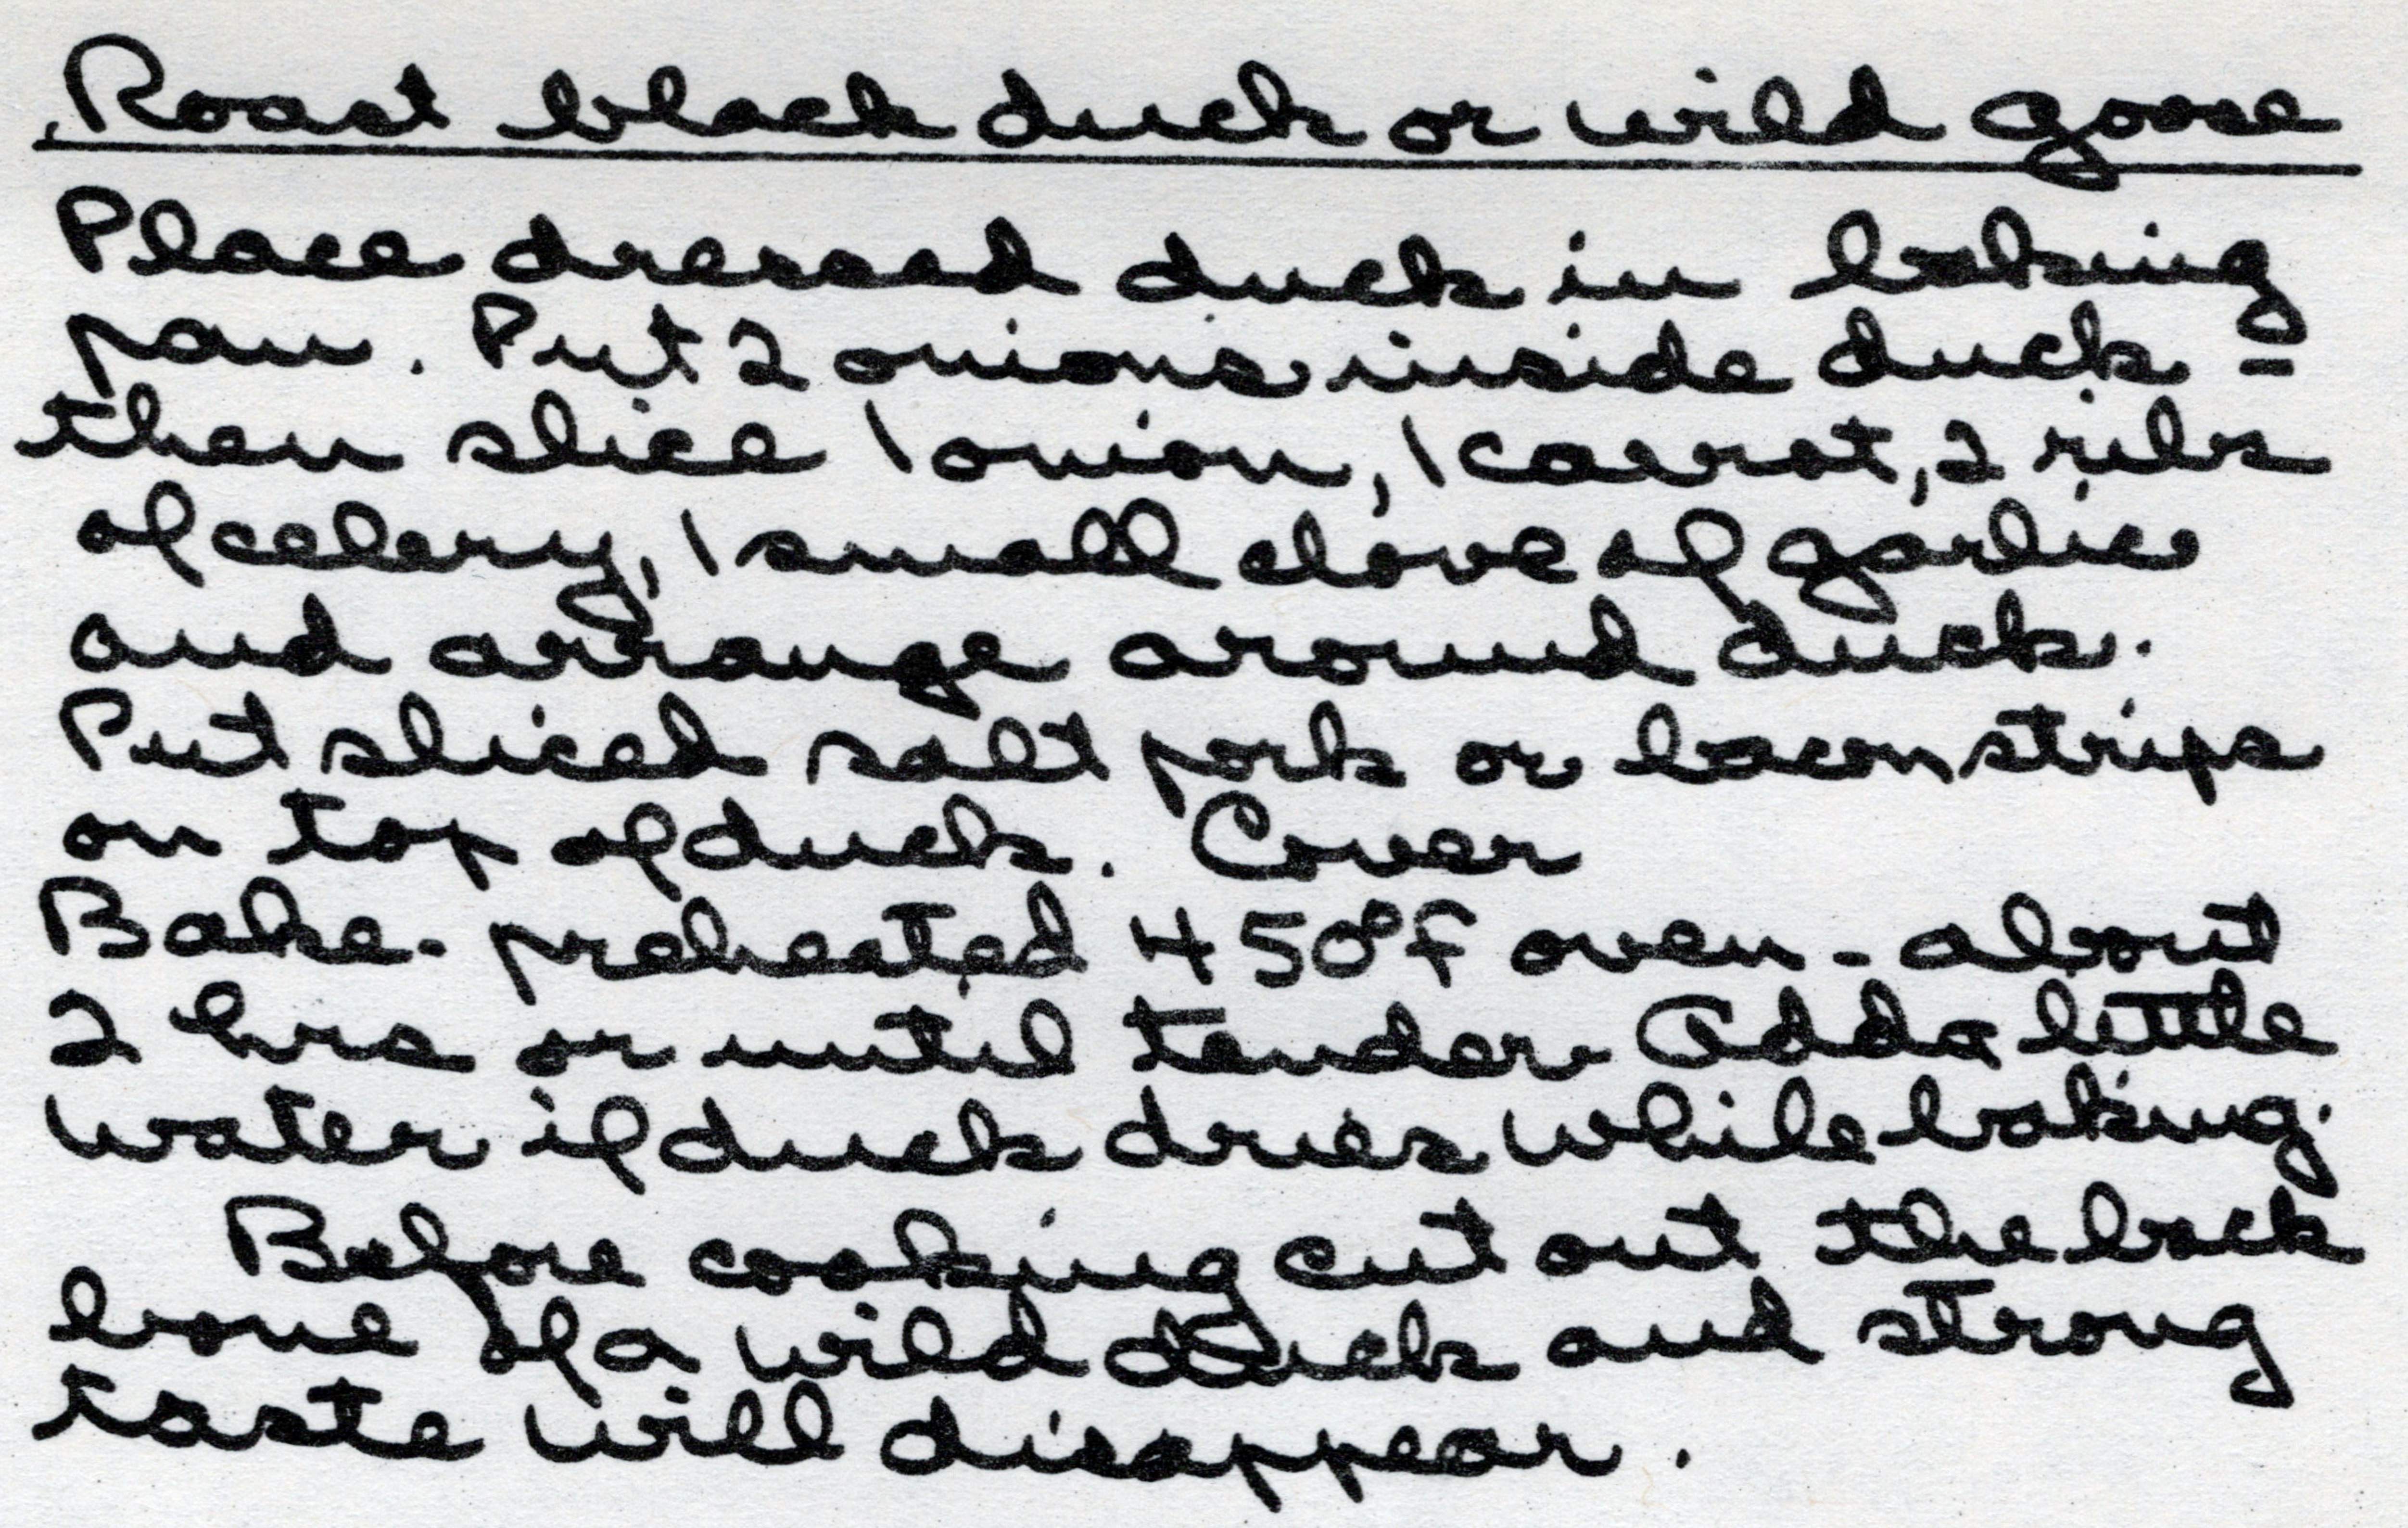 Roast black duck or wild goose
Place dressed duck in baking
pan. Put 2 onions inside duck =
then slice 1 onion, 1 carrot, 2 ribs
of celery, 1 small clove of garlic
and arrange around duck.
Put sliced salt pork or bacon strips
on top of duck. Cover
Bake - preheated 450°F oven - about
2 hrs or until tender. Add a little
water if duck dries while baking.
Before cooking cut out the back
bone of a wild duck and strong
taste will disappear.